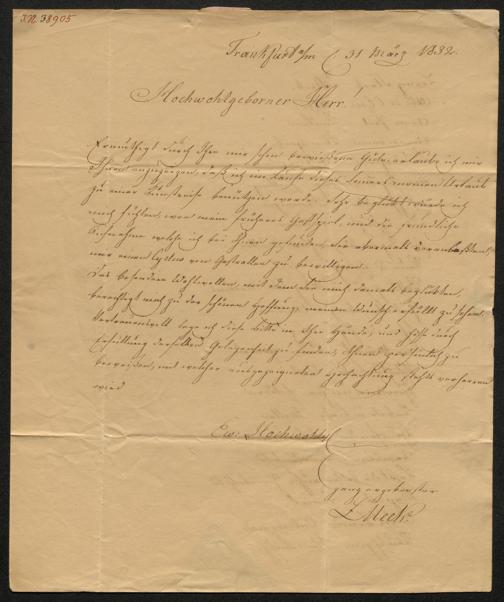 I.N. 38905
Frankfurt a/m 31 März 1832.
Hochwohlgeborner Herr!
Ermuthigt durch Ihre mir schon bewiesene Güte, erlaube ich mir
Ihnen anzuzeigen, daß ich im Laufe dieses Sommers meinen Urlaub
zu einer Kunstreise benützen werde. Sehr beglückt würde ich
mich fühlen, wenn mein früheres Gastspiel und die freundliche
Aufnahme welche ich bei Ihnen gefunden, Sie abermals veranlaßten,
mir einen Cyclus von Gastrollen zu bewilligen.
Das besondere Wohlwollen, mit dem Sie mich damals beglückten,
berechtigt mich zu der schönen Hoffnung, meinen Wunsch erfüllt zu sehen.
Vertrauensvoll lege ich diese Bitte in Ihre Hände, und hoffe nach
Erfüllung derselben Gelegenheit zu finden, Ihnen persönlich zu
beweisen, mit welcher ausgezeichneten Hochachtung stets verharren
wird
Ew: Hochwohlg
ganz ergebenster
Meck